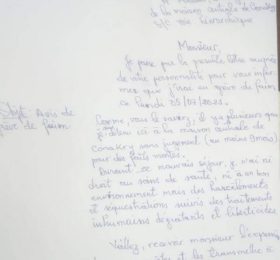 de la maison centrale de Conakry
S/C voie hiérarchique
Monsieur,
Je passe par la présente lettre auprès
de votre personnalité pour vous infor-
mer que j'irai en grève de faim,
ce lundi
Objet: Avis de
grève de faim
Comme vous le savez, il y a plusieurs
détenu ici à la maison centrale de
Conakry sans jugement (au moins 9 mois)
pour des faits
Durant ce mauvais séjour, je n'ai ni
droit au soin de santé, ni à un bon
environnement mais des harcèlements
et séquestrations suivis des traitements
inhumains dégradants et liberticides
Veillez, recevoir monsieur
et les transmettre à